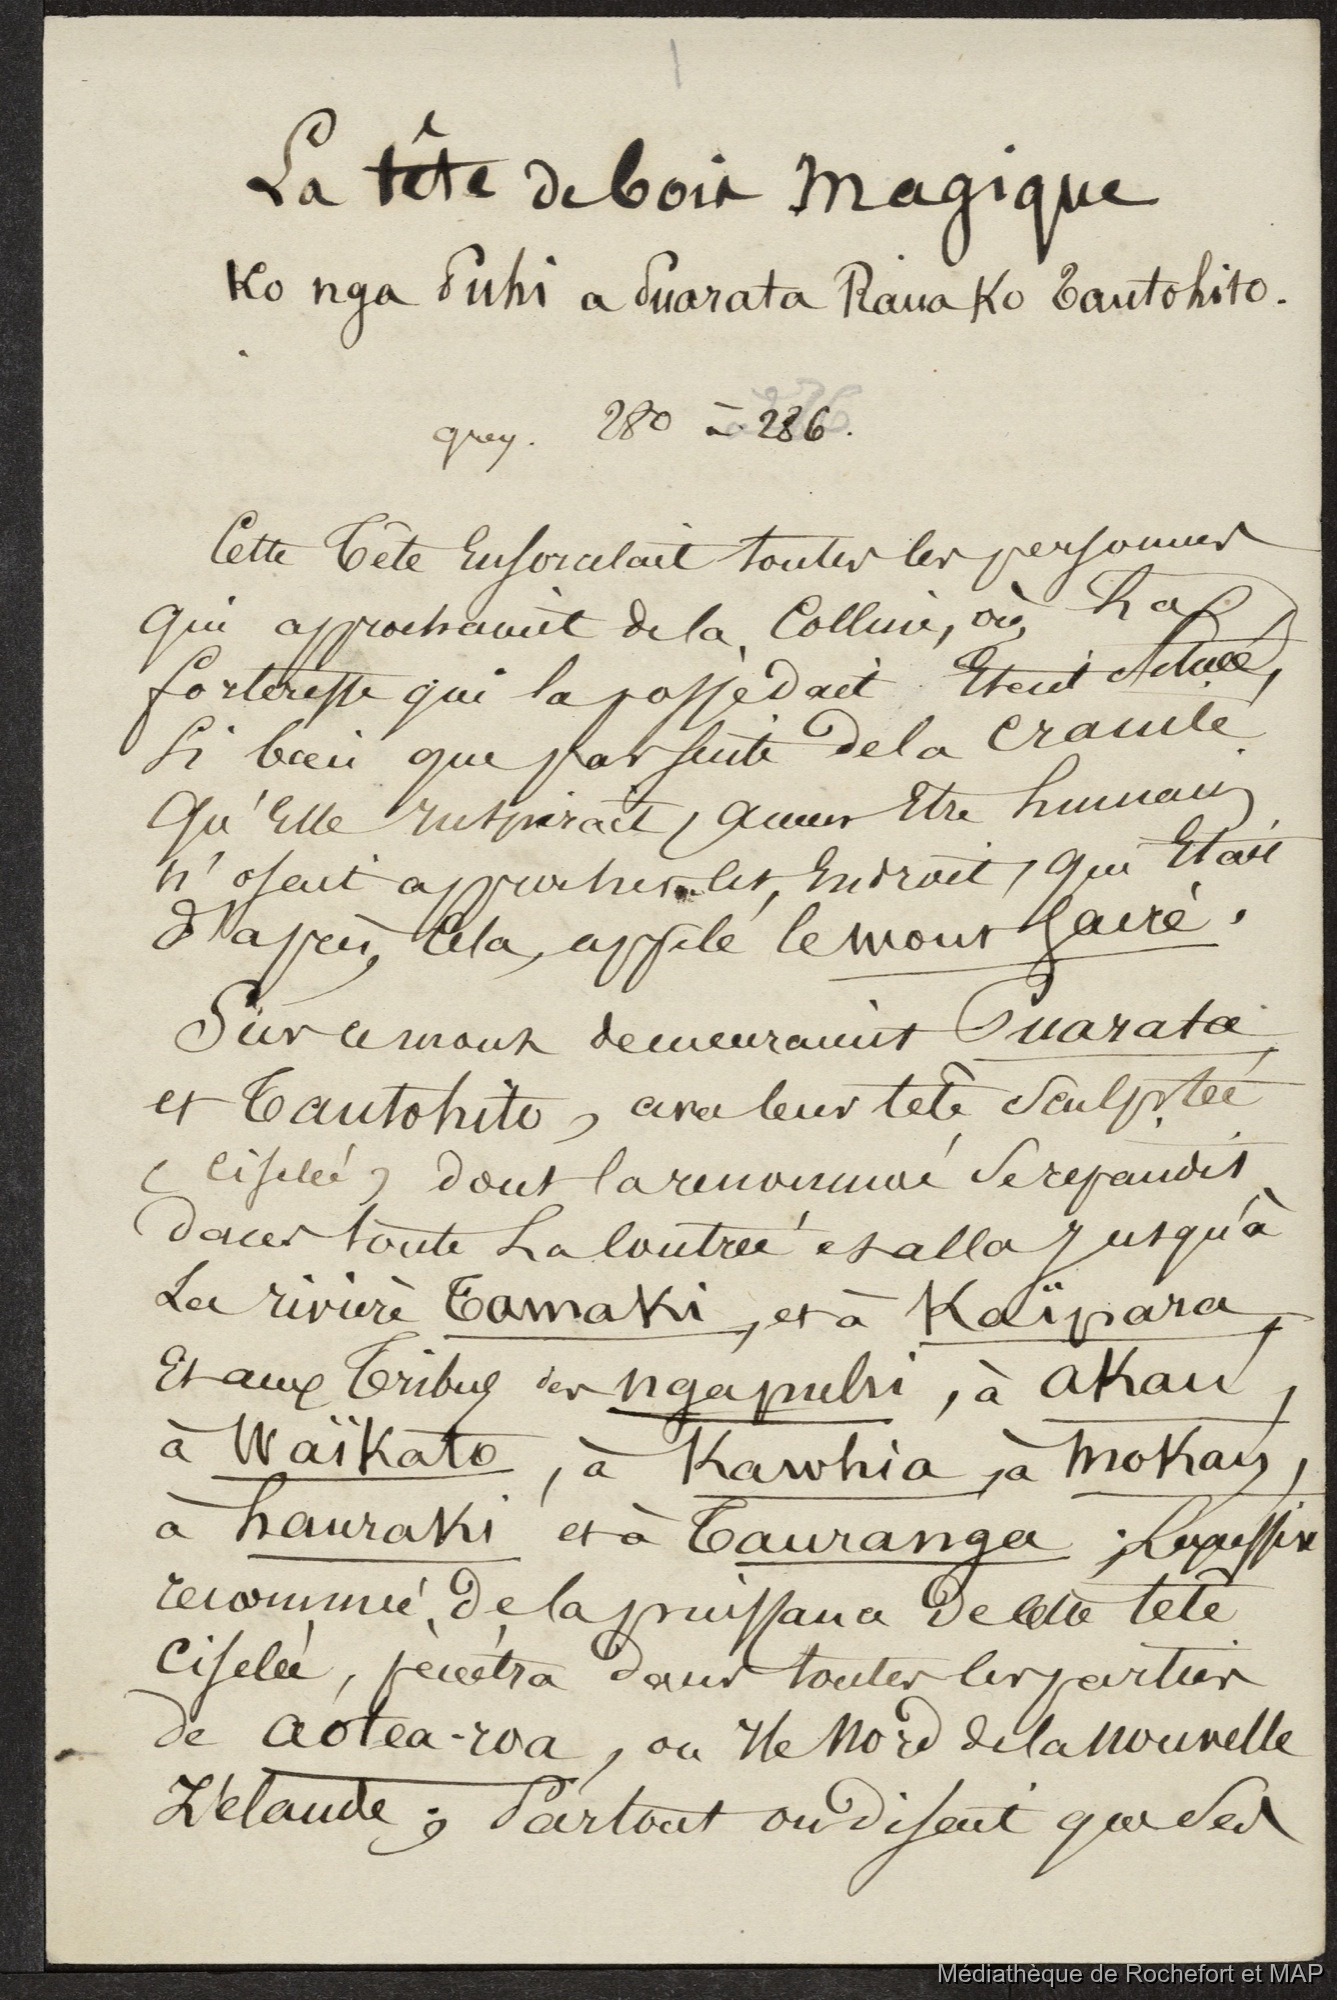 1
La tête de bois magique
Ko nga Puhi a Puarata Raua Ko Tautohito.
grey. 280 à 286.
Cette Tête Ensorcelait toutes les personnes
qui approchaient de la Colline, où, La
forteresse qui la possèdait Etait Située,
Si bien que par suite de la crainte
Qu'Elle inspirait, aucun Etre humain
n'osait approcher cet Endroit, qui Etait
d'après Cela, appelé le mont Sacré.
Sur ce mont demeuraient Puarata
et Tautohito, avec leur tête Sculptée
(Ciselée) dont la renommée Se repandit
dans toute La Contrée et alla Jusqu'à
La rivière Tamaki, et à Kaïpara,
Et aux Tribus des ngapuhi, à aKau,
à Waïkato, à Kawhia, à moKau,
à hauraki et à Tauranga;
renommée de la puissance de cette tête
Ciselée, pénétra dans toutes les parties
de aotea-roa, ou Ile Nord de la Nouvelle
Zélande; Partout on disait que Ses
Médiathèque de Rochefort et MAP